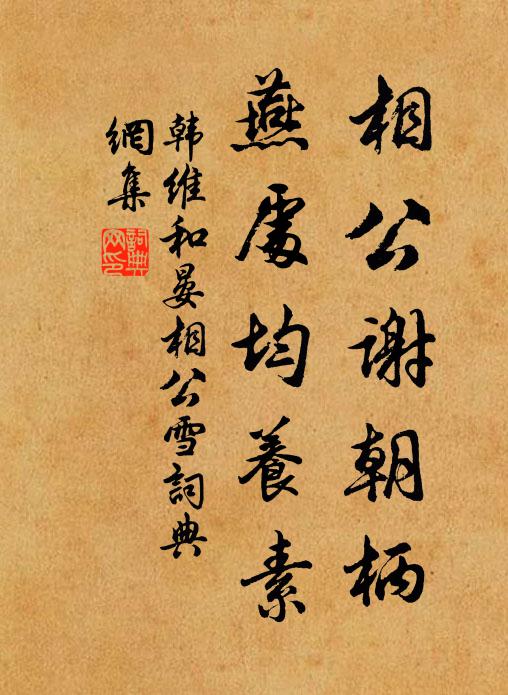 相公謝朝柄
燕處均養素
韩維和晏相公雪詞典
網集
詞典
网印